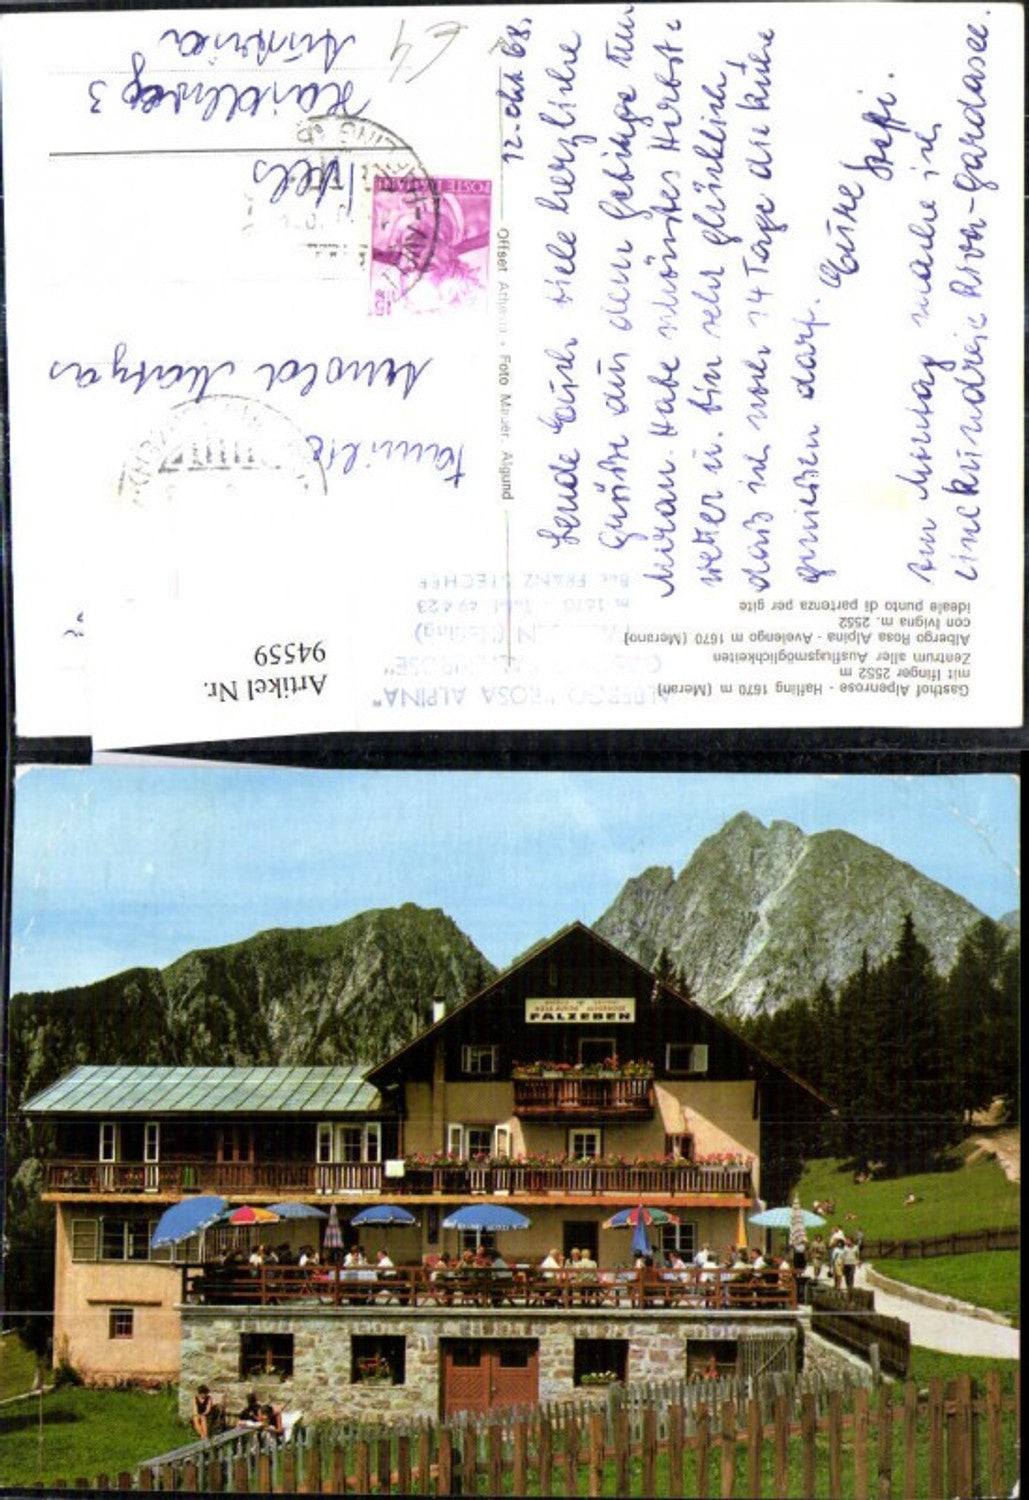 Gasthof Alpenrose - Hafling 1670 m (Meran)
mit Ifinger 2552 m
Zentrum aller Ausflugsmöglichkeiten
Albergo Rosa Alpina - Avelengo m 1670 (Merano)
con Ivigna m. 2552
ideale punto di partenza per gite
ALBERGO "ROSA ALPINA"
(Hafling)
m 1670 - Telef. 49 4 23
Bes. FRANZ STECHER
Artikel Nr.
94559
Offset Athesia - Foto Mauer Algund
12. Okt 68.
Sende Euch viele herzliche
Grüße aus dem Gebirge
Meran. Habe schönstes Herbst-
wetter u. bin sehr glücklich
daß ich noch 14 Tage die Ruhe
genießen darf.
Eure
Steffi.
Am Montag mache ich
eine Rundreise Riva-Gardasee.
POSTE
15
Familie
Arnold Matyas
Wels
3
Austria
€4
FALZEBEN